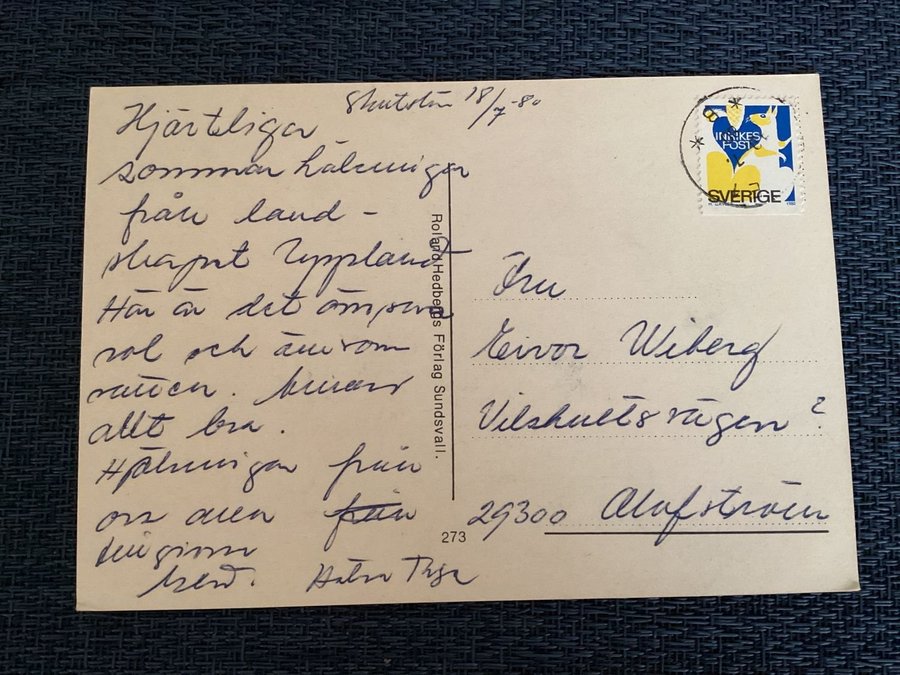 Skutskär 18/7-80
Hjärtliga
sommar hälsningar
från land-
skapet Uppland
Här är det ömsom
sol och ömsom
vatten. annars
allt bra.
Hälsningar från
oss alla från
gm
Tyra
Roland Hedbergs Förlag Sundsvall.
273
INRIKES
POST
SVERIGE
Fru
Eivor Wiberg
Vilshultsvägen 2
29300 Olofström